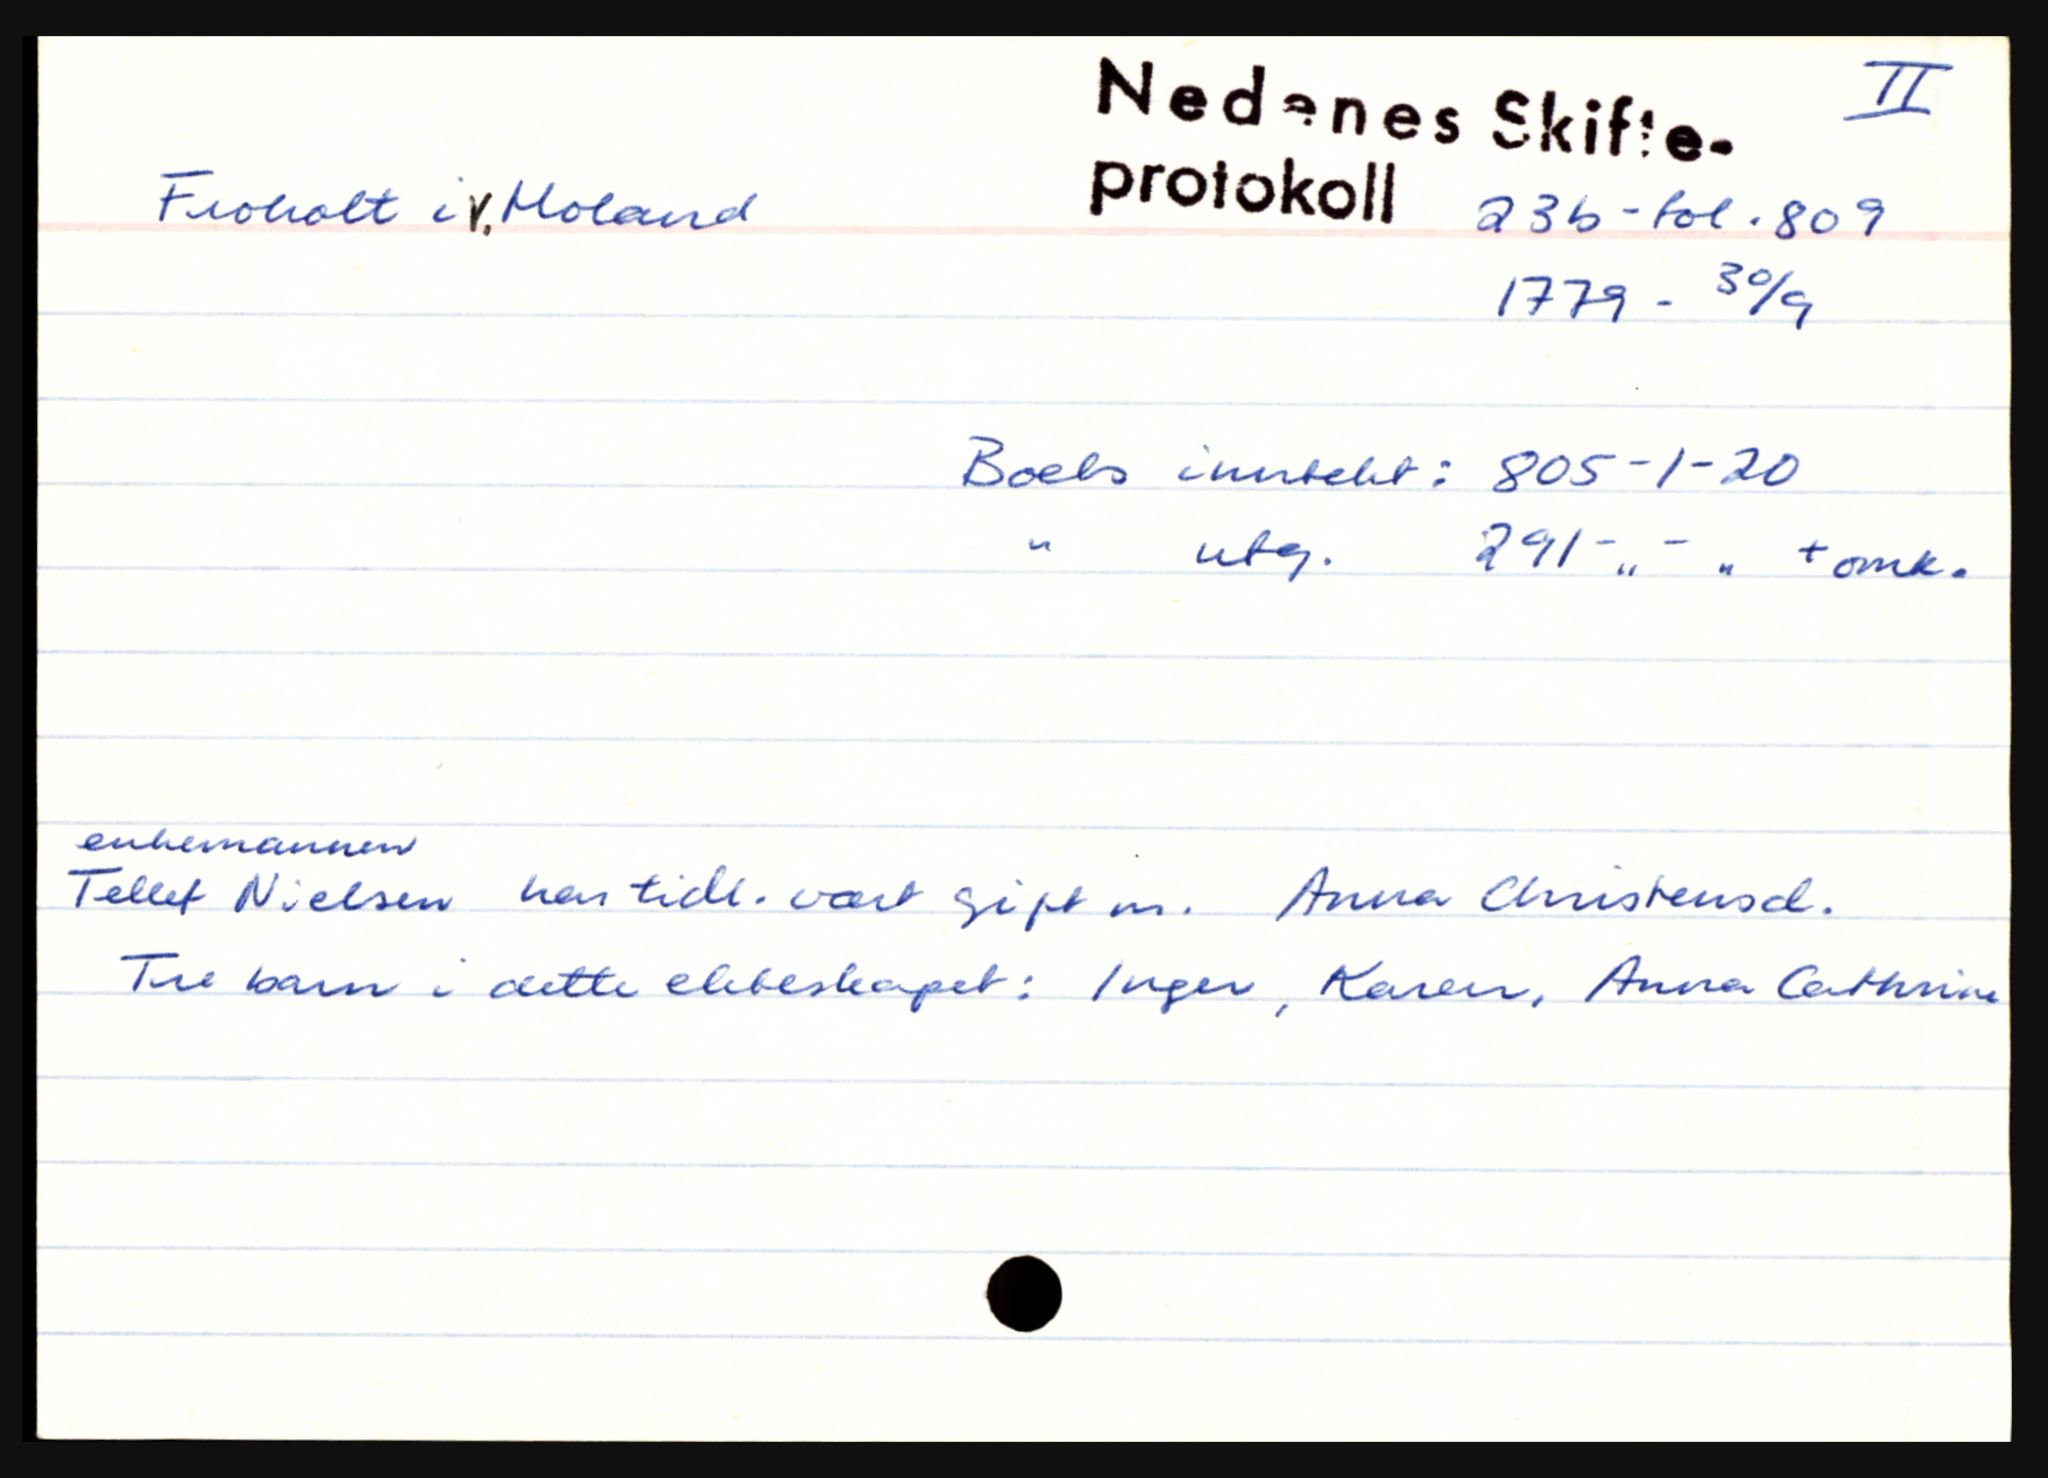 II
Nedenes Skifte-
protokoll
Froholt i V. Moland
23b - fol. 809
1779 - 30/9
Boets inntekt: 805-1-20
" utg. 291-"-" + omk.
enkemannen
Tellef Nielsen har tidl. vært gift m. Anna Christensd.
Tre barn i dette ekteskapet: Inger, Karen, Anna Cathrine